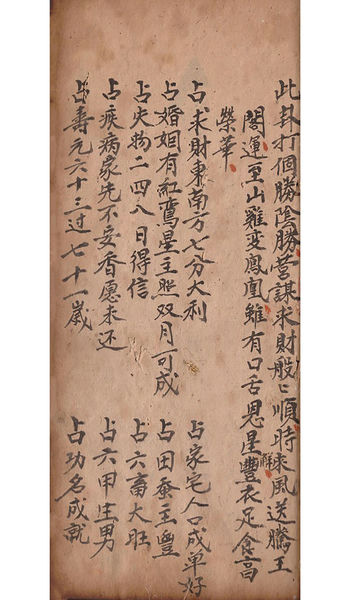 此卦打個勝陰勝营謀求財般〻順時來風送騰王
閣運至山雞变鳳凰雖有口舌恩星解豐衣足食高
榮華
占求財東南方七分大利
占婚姻有紅鸞星主照双月可成
占失物二四八日得信
占疾病家先不安香愿未还
占壽元六十三过七十一歲
占家宅人口成单好
占田蚕主豐
占六畜大旺
占六甲生男
占功名成就